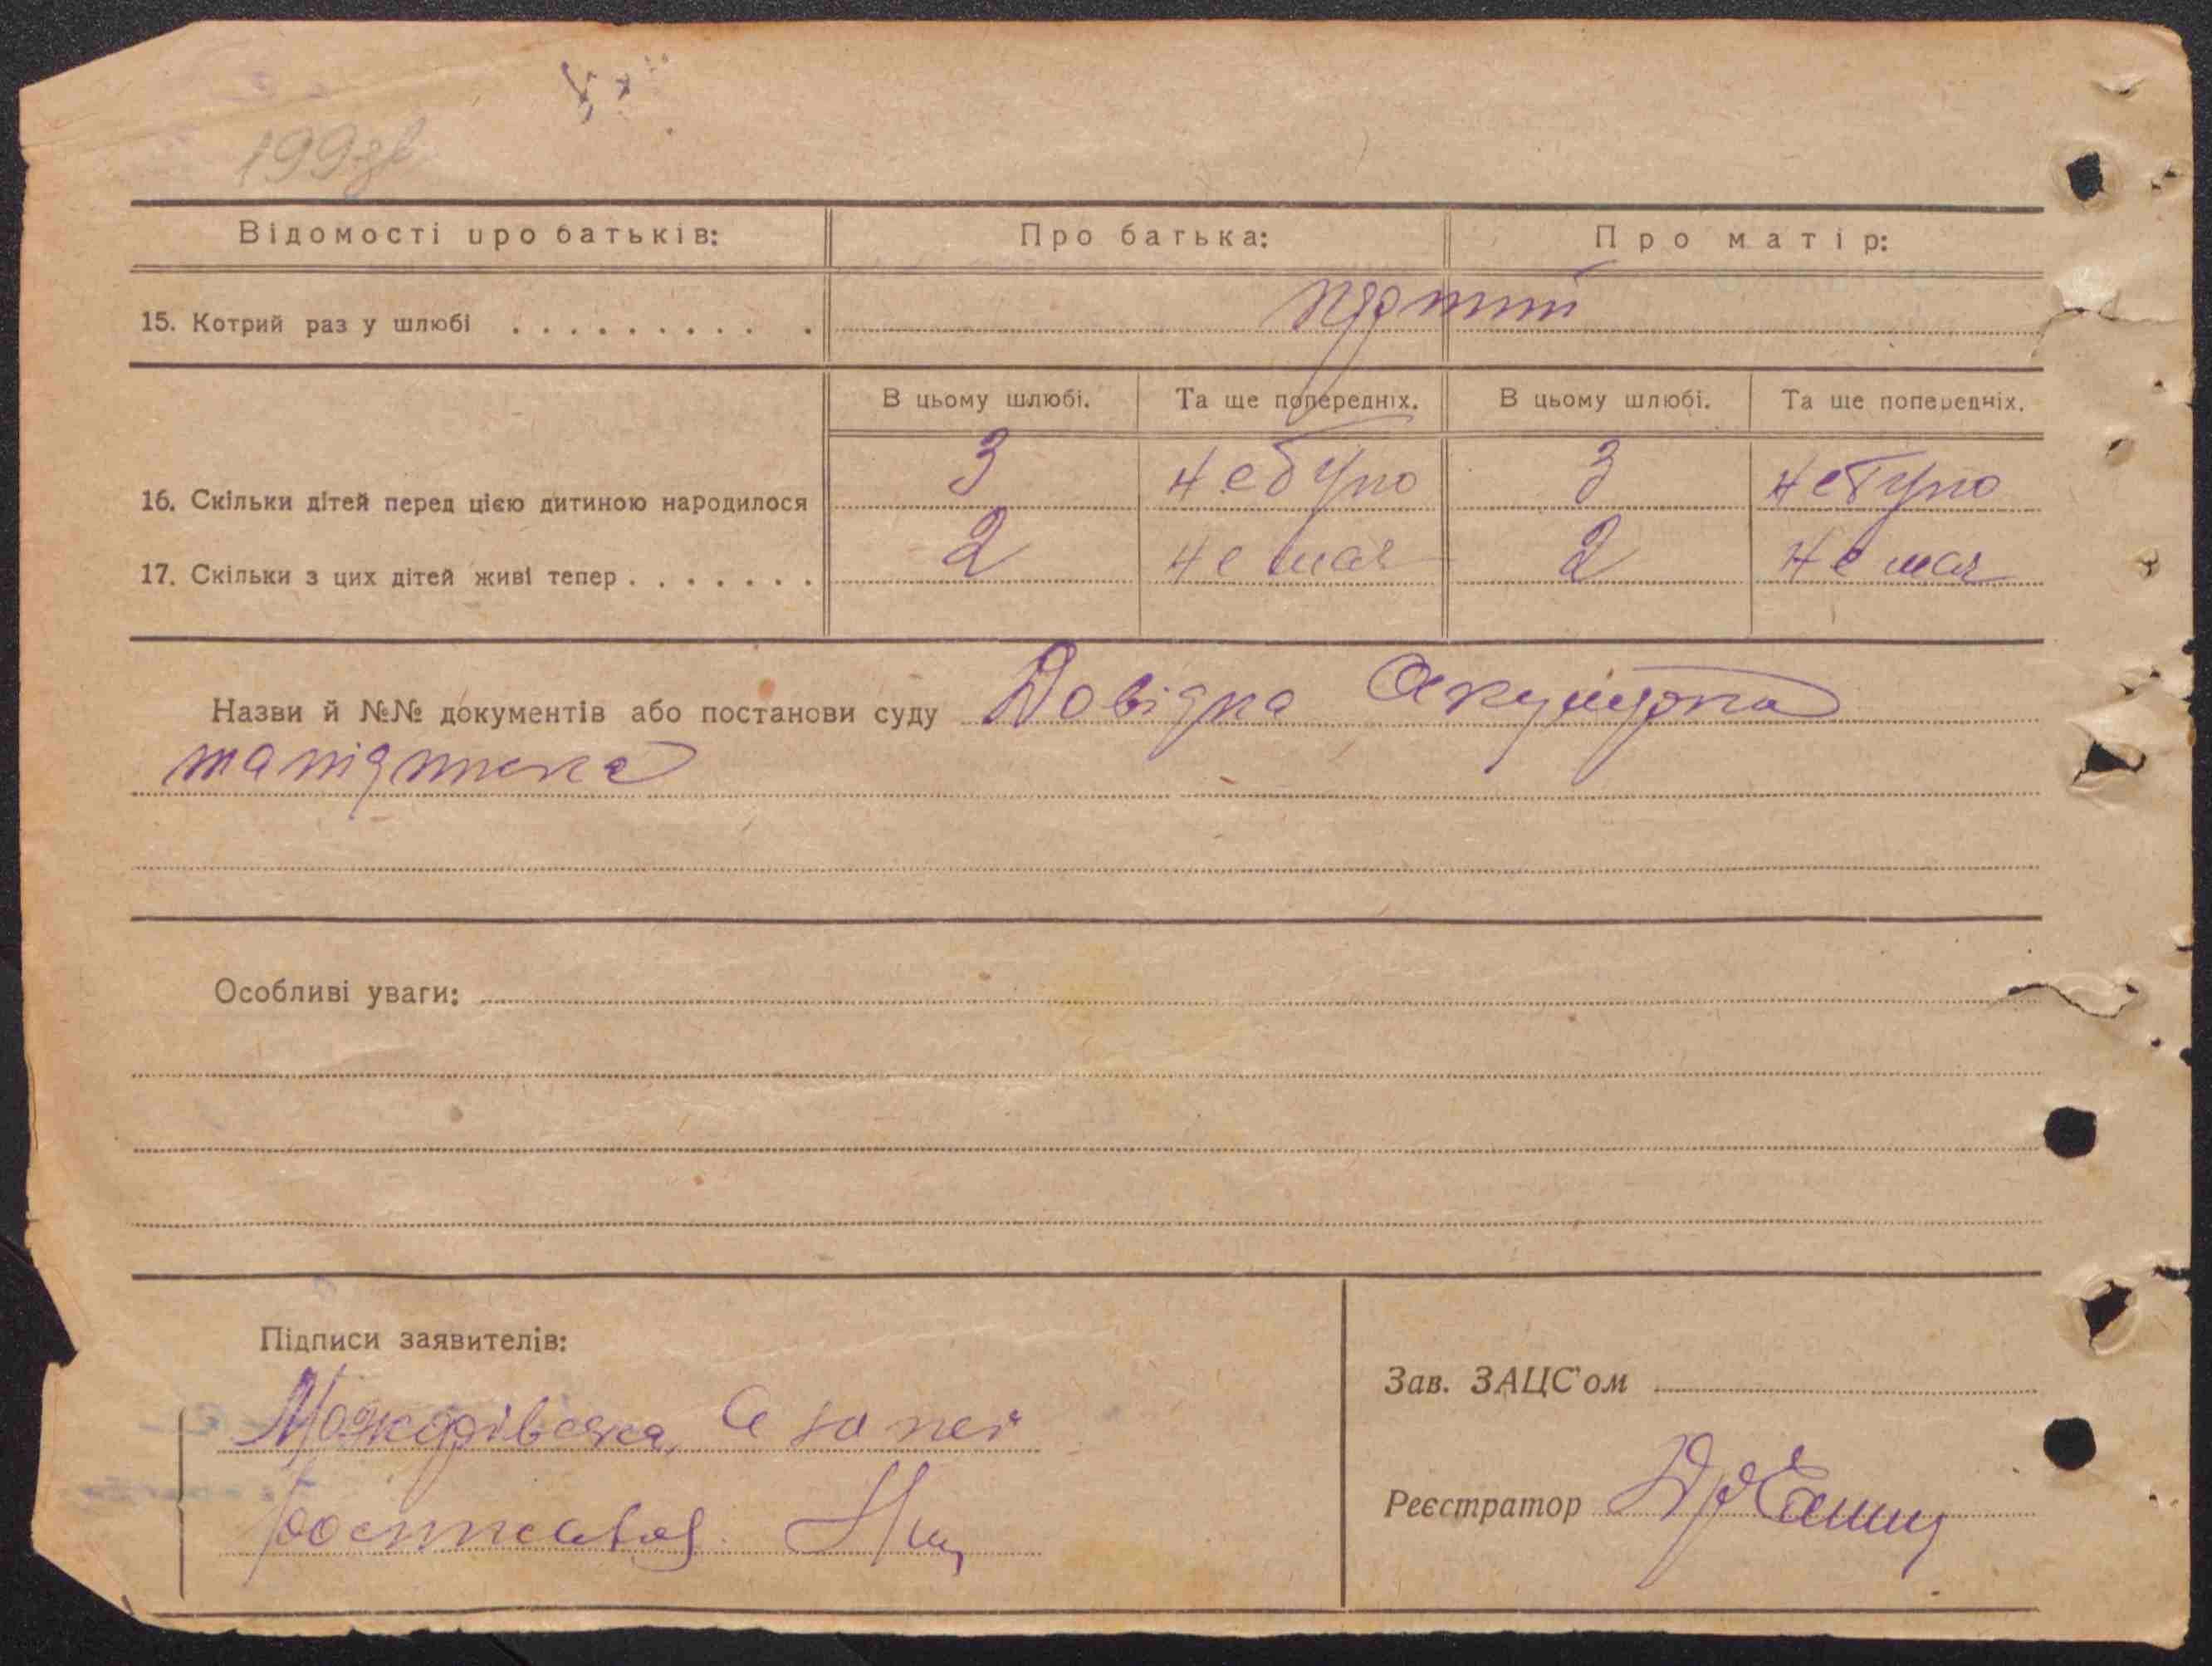 199зв
Відомості про батьків:
Про батька:
Про матір:
15. Котрий раз у шлюбі
В цьому шлюбі.
Та ще попередніх.
В цьому шлюбі.
Та ще попередніх.
16. Скільки дітей перед цією дитиною народилося
3
не було
3
не було
17. Скільки з цих дітей живі тепер
2
не має
2
не має
Назви й №№ документів або постанови суду Довідка Акушорка
та підписка
Особливі уваги:
Підписи заявителів:
а за неї
Зав. ЗАЦС'ом
росписався
Реєстратор